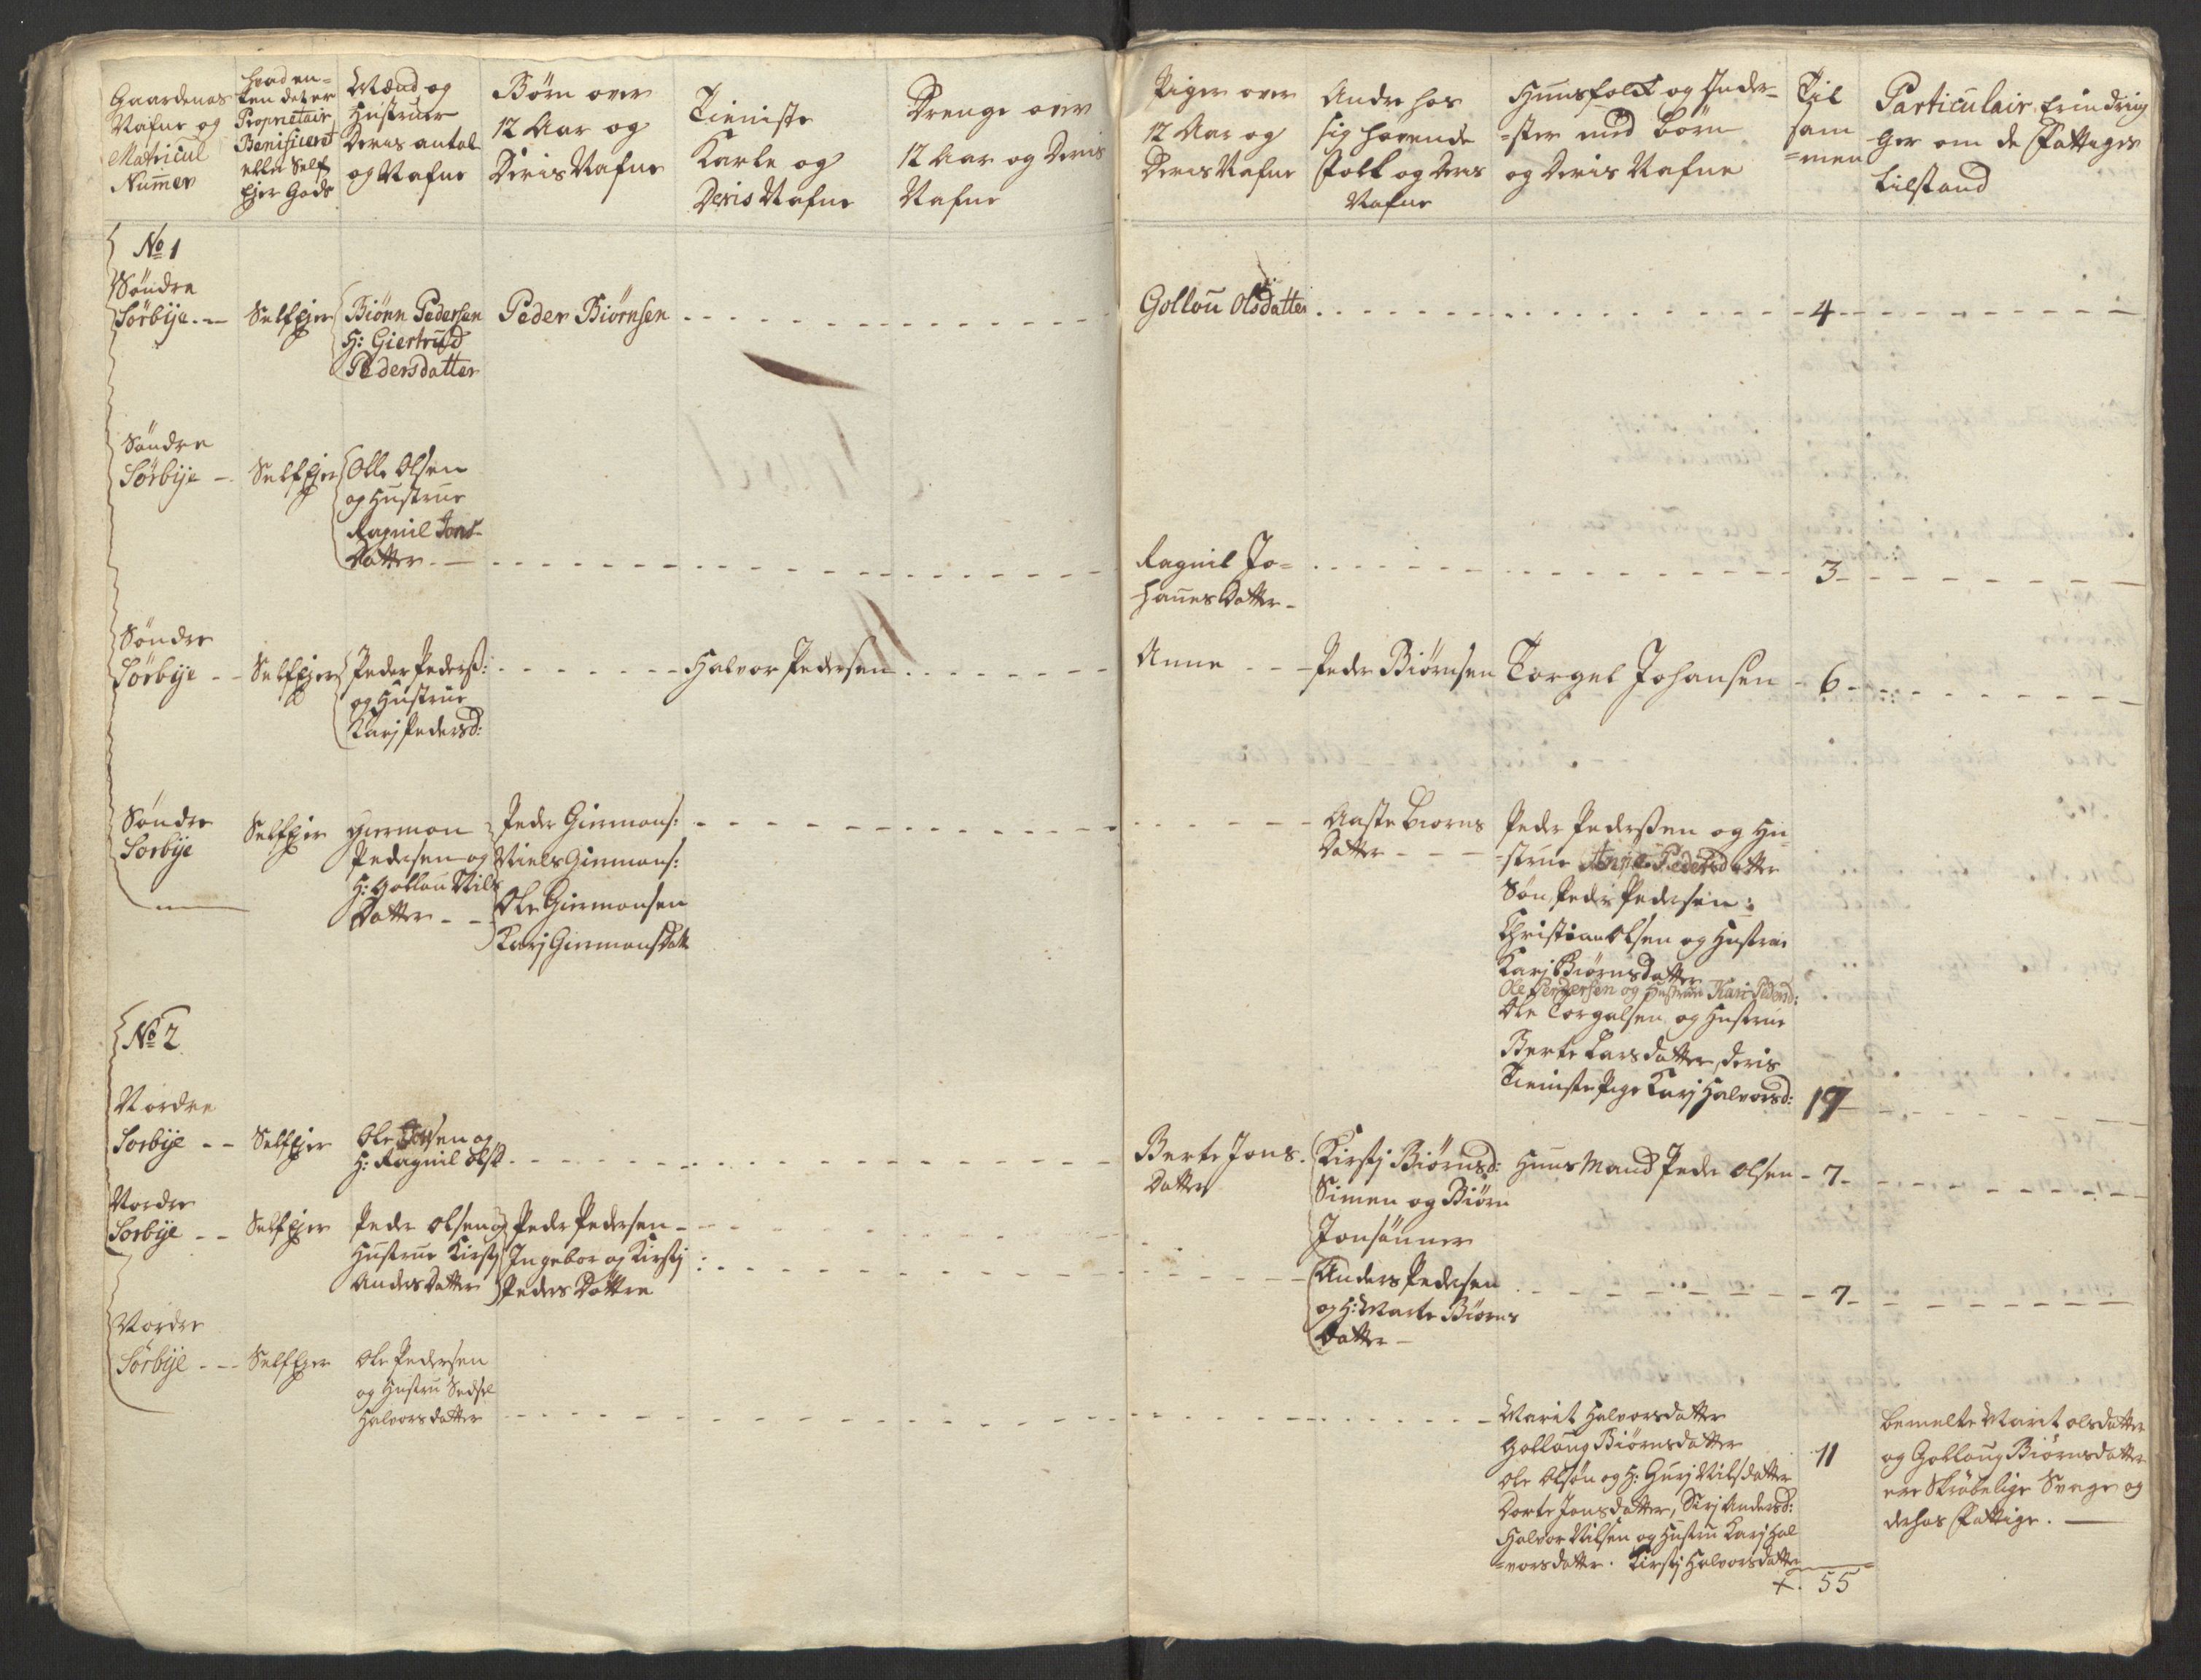 Gaardenes
Nafne og
Matricul
Numer
hvad en=
ten det er
Proprietair
Benificeret
eller Self
Ejer Gods
Mænd og
Hustruer
Deris antal
og Nafne
Børn over
12 Aar og
Deris Nafne
Tieniste
Karle og
Deris Nafne
Drenge over
12 Aar og Deris
Nafne
Piger over
12 Aar og
Deris Nafne
Andre hos
sig havende
Folk og Deris
Nafne
Huusfolck og Inder=
=ster med børn
og Deris Nafne
Til
sam
=men
Particulair Erindrin
ger om de Fattiges
tilstand
No 1
Söndre
Sörbije
SelfEjer
Biönn Pedersen
H: Giertrud
Pedersdatter
Peder Biörnsen
Gollou Olsdatter
4
Söndre
Sörbije
SelfEjer
Olle Olsen
og Hustrue
Ragnil Jons
Datter
Ragnil Jo=
hanes Datter
3
Söndre
Sörbije
SelfEjer
Peder Pederss:
og Hustrue
Karj Pedersd:
Halvor Pedersen
Anne
Peder Biörnsen
Torgel Johansen
6
Söndre
Sorbije
SelfEjer
Giermon
Pedersen og
H: Gollou Nils
Datter
Peder Giermons:
Niels Giermons:
Ole Giermonsen
Karj GiermonsDatt
Aaste Biorns
Datter
Peder Pedersen og Hu
=strue Anne Pedersdatter
Sön Peder Pedersen
Christian Olsen og Hustrue
Karj Biörnsdatter
Ole Pedersen og Hustrue Kari Pedersd:
Ole Torgalsen og Hustrue
Berte Larsdatter, Deris
Tieniste Pige Karj Halvorsd:
17
No 2
Nordre
Sorbije
SelfEjer
Ole Jonsen og
H: Ragnil Olsd
Berte Jons
Datter
Kirstj Biörnsd:
Simen og Biörn
Jonsönner
Huus Mand Peder Olsen
7
Nordre
Sorbije
SelfEjer
Peder Olsen og
Hustrue Kirstj
AndersDatter
Peder Pedersen
Ingebor og Kirstj
Peders Döttre
Anders Pedersen
og H: Marte Biörns
Datter
7
Nordre
Sörbije
SelfEjer
Ole Pedersen
og Hustru Sedsel
Halvorsdatter
Marit Halvorsdatter
Gollaug Biörnsdatter
Ole Olsön og H: Gurj Nilsdatter
Dorte Jonsdatter, Sirj Andersd:
Halvor Nilsen og Hustru Karj Hal
=vorsdatter. Kirstj Halvorsdatter
11
bemelte Marit Olsdatter
og Gollaug Biörnsdatter
ere Skröbelige Svage og
derhos Fattige.
55